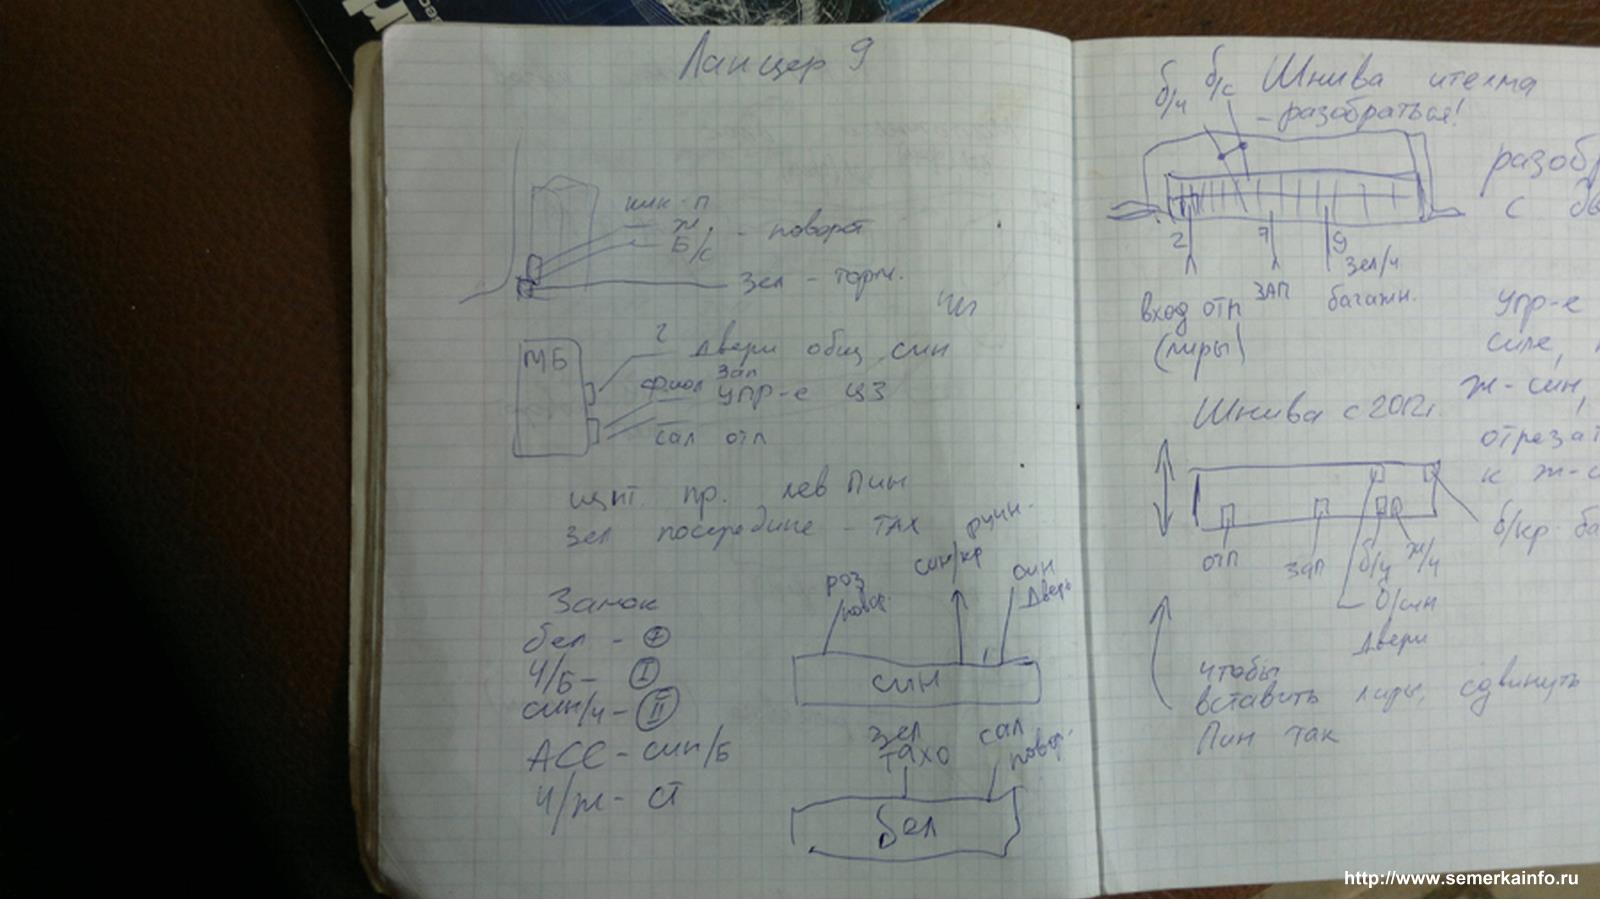 Лансер 9
- поворот
Б/с
Зел - торм.
МБ
2
Двери общ син
Фиол Зап
упр-е ЦЗ
сал отп
щит. пр. лев Пин
зел посредине - ТАХ
Замок
бел - +
Ч/Б - I
син/ч - II
АСС - син/Б
Ч/ж - СТ
роз
/повор.
син/кр ручн.
син
Дверь
син
зел
тахо
сал
повор.
бел
б/ч б/с Шнива ителма
- разобраться!
2 7 9
зел/ч
вход отп ЗАП багажн.
(лиры)
Шнива с 2012г
отп зап б/ч ж/ч
б/син
Двери
чтобы
вставить лиры, сдвинуть
Пин так
разоб
с дв
упр-е
силе,
ж-син,
отрезат
к ж-с
б/кр ба
http://www.semerkainfo.ru